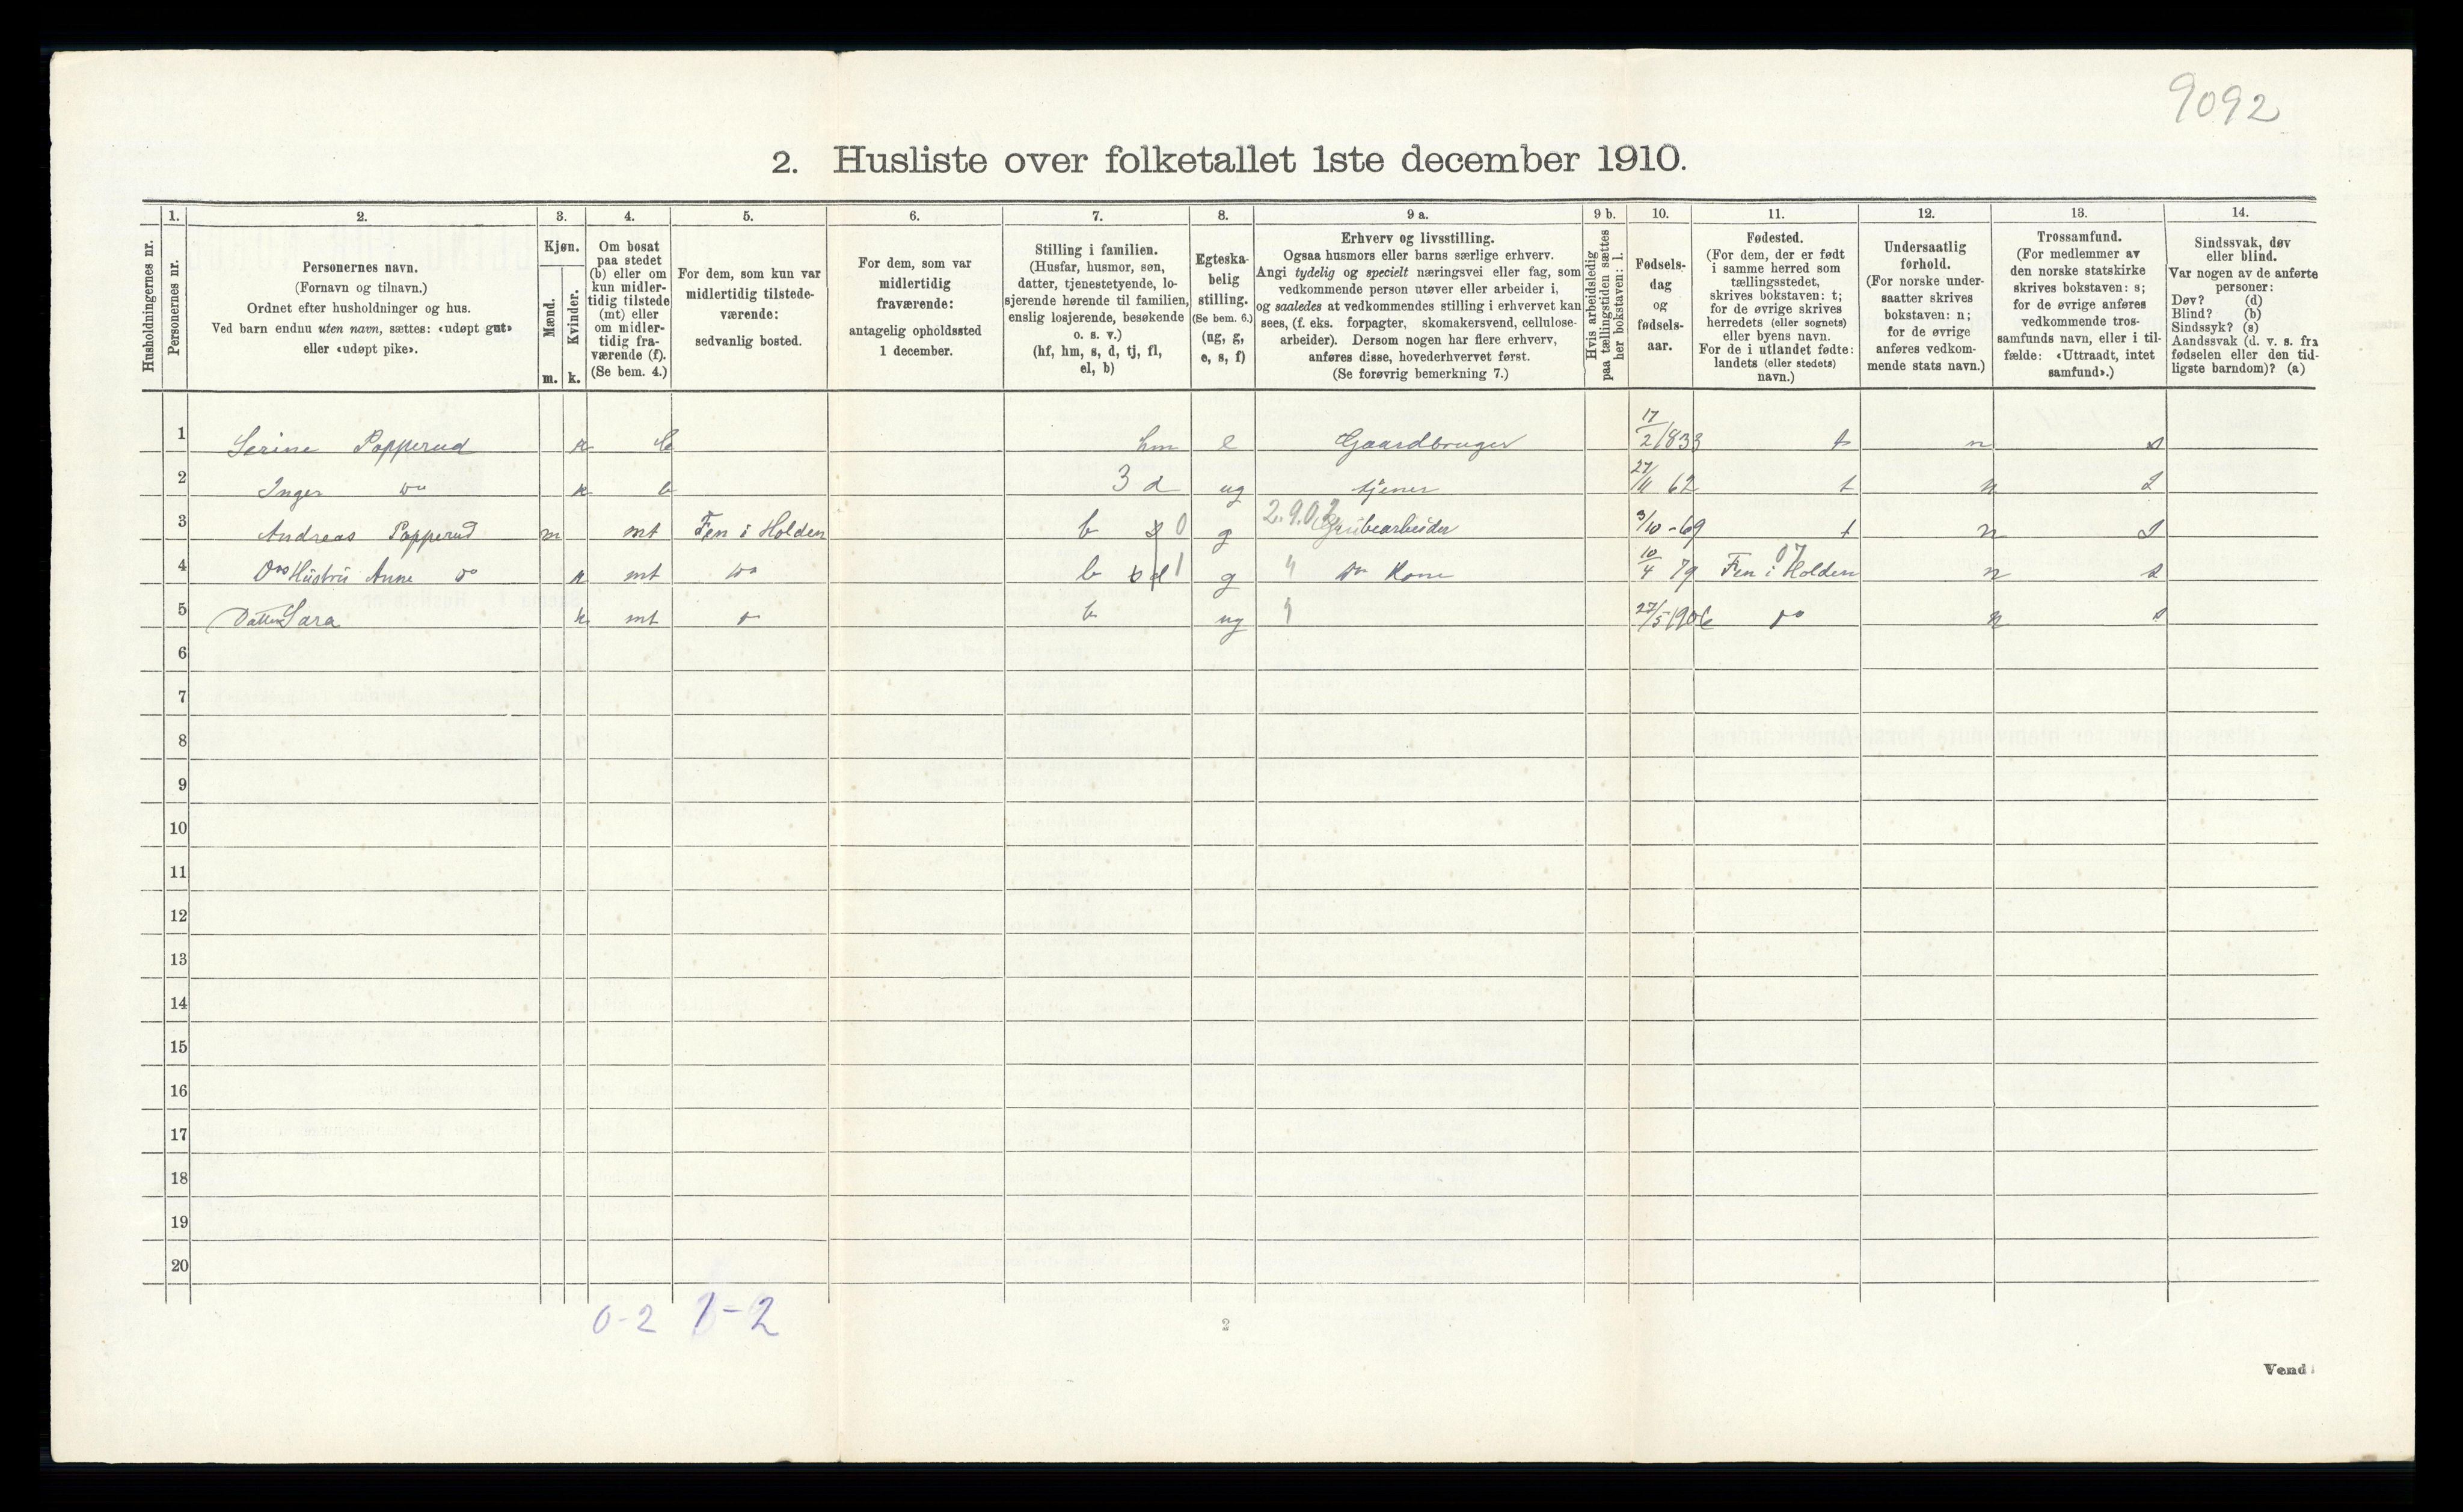 9092
2. Husliste over folketallet 1ste december 1910.
Husholdningernes nr.
1. Personernes nr.
2. Personernes navn.
(Fornavn og tilnavn.)
Ordnet efter husholdninger og hus.
Ved barn endnu uten navn, sættes: «udøpt gut»
eller «udøpt pike».
3. Kjøn.
Mænd. Kvinder.
m. k.
4. Om bosat
paa stedet
(b) eller om
kun midler-
tidig tilstede
(mt) eller
om midler-
tidig fra-
værende (f).
(Se bem. 4.)
5. For dem, som kun var
midlertidig tilstede-
værende:
sedvanlig bosted.
6. For dem, som var
midlertidig
fraværende:
antagelig opholdssted
1 december.
7. Stilling i familien.
(Husfar, husmor, søn,
datter, tjenestetyende, lo-
sjerende hørende til familien,
enslig losjerende, besøkende
o. s. v.)
(hf, hm, s, d, tj, fl,
el, b)
8. Egteska-
belig
stilling.
(Se bem. 6.)
(ug, g,
e, s, f)
9 a. Erhverv og livsstilling.
Ogsaa husmors eller barns særlige erhverv.
Angi tydelig og specielt næringsvei eller fag, som
vedkommende person utøver eller arbeider i,
og saaledes at vedkommendes stilling i erhvervet kan
sees, (f. eks. forpagter, skomakersvend, cellulose-
arbeider). Dersom nogen har flere erhverv,
anføres disse, hovederhvervet først.
(Se forøvrig bemerkning 7.)
9 b. Hvis arbeidsledig
paa tællingstiden sættes
her bokstaven: l.
10. Fødsels-
dag
og
fødsels-
aar.
11. Fødested.
(For dem, der er født
i samme herred som
tællingsstedet,
skrives bokstaven: t;
for de øvrige skrives
herredets (eller sognets)
eller byens navn.
For de i utlandet fødte:
landets (eller stedets)
navn.)
12. Undersaatlig
forhold.
(For norske under-
saatter skrives
bokstaven: n;
for de øvrige
anføres vedkom-
mende stats navn.)
13. Trossamfund.
(For medlemmer av
den norske statskirke
skrives bokstaven: s;
for de øvrige anføres
vedkommende tros-
samfunds navn, eller i til-
fælde: «Uttraadt, intet
samfund».)
14. Sindssvak, døv
eller blind.
Var nogen av de anførte
personer:
Døv? (d)
Blind? (b)
Sindssyk? (s)
Aandssvak (d. v. s. fra
fødselen eller den tid-
ligste barndom)? (a)
1 Serine Papperud k b hm e Gaardbruger 17/2 1833 t n s
2 Inger do k b 3 d ug tjener 27/11 62 t n s
3 Andreas Papperud m mt Fen i Holden b s 0 g 2.9.03 Grubearbeider 3/10 - 69 t n s
4 Hustru Anne do k mt do b d 1 g " Kone 10/4 79 Fen i Holden 07 n s
5 Datter Sara k mt b ug " 27/5 1906 do n s
6
7
8
9
10
11
12
13
14
15
16
17
18
19
20
0-2 1-2
2
Vend